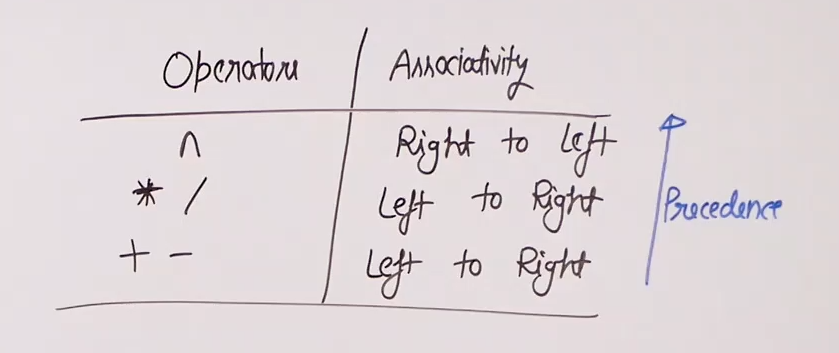 Operators Associativity
^ Right to Left
* / Left to Right
+ - Left to Right
Precedence